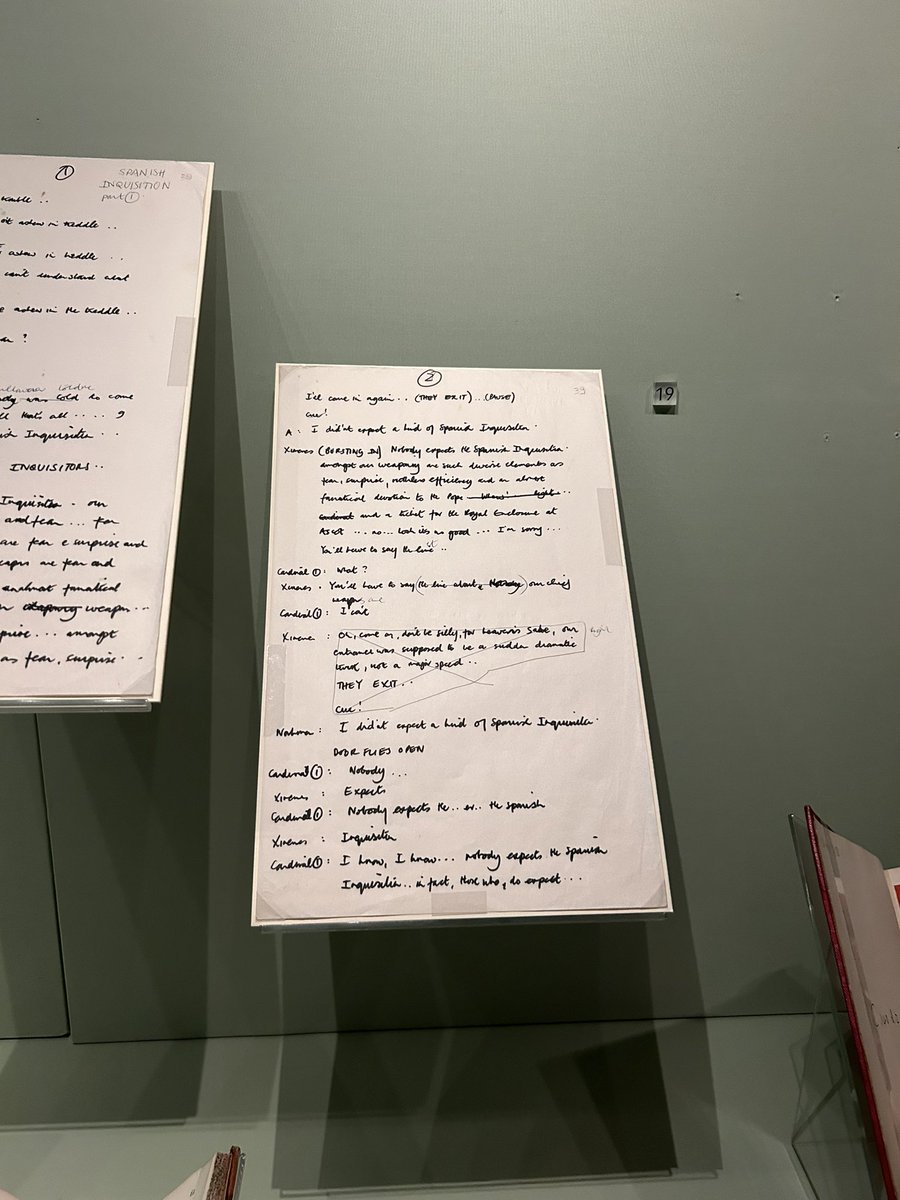 ①
SPANISH
INQUISITION
part ①
39
trouble !..
askew in treddle ..
askew in treddle ..
can't understand what
askew in the treddle ..
?
was told to come
that's all .... 9
Inquisition ..
INQUISITORS ..
Inquisition - our
and fear ... fear
are fear & surprise and
are fear and
almost fanatical
weapon ...
surprise ... amongst
as fear, surprise ..
②
39
I'll come in again .. (THEY EXIT) .. (PAUSE)
Cue!
A : I didn't expect a kind of Spanish Inquisition.
Ximenes (BURSTING IN) Nobody expects the Spanish Inquisition.
amongst our weaponry are such diverse elements as
fear, surprise, ruthless efficiency and an almost
fanatical devotion to the Pope
and a ticket for the Royal Enclosure at
Ascot ... no.. look it's no good ... I'm sorry ...
You'll have to say the line ..
Cardinal ① : What ?
Ximenes . You'll have to say (the line about Nobody) our chief
weapon are
Cardinal ① : I can't
Ximenes : Oh, come on, don't be silly, for heaven's sake, our
entrance was supposed to be a sudden dramatic
not a major speech ..
THEY EXIT ..
Cue!
Northern : I didn't expect a kind of Spanish Inquisition.
DOOR FLIES OPEN
Cardinal ① : Nobody ...
Ximenes : Expects
Cardinal ① : Nobody expects the .. er .. the Spanish
Ximenes : Inquisition
Cardinal ① : I know, I know ... nobody expects the Spanish
Inquisition .. in fact, those who, do expect ...
19